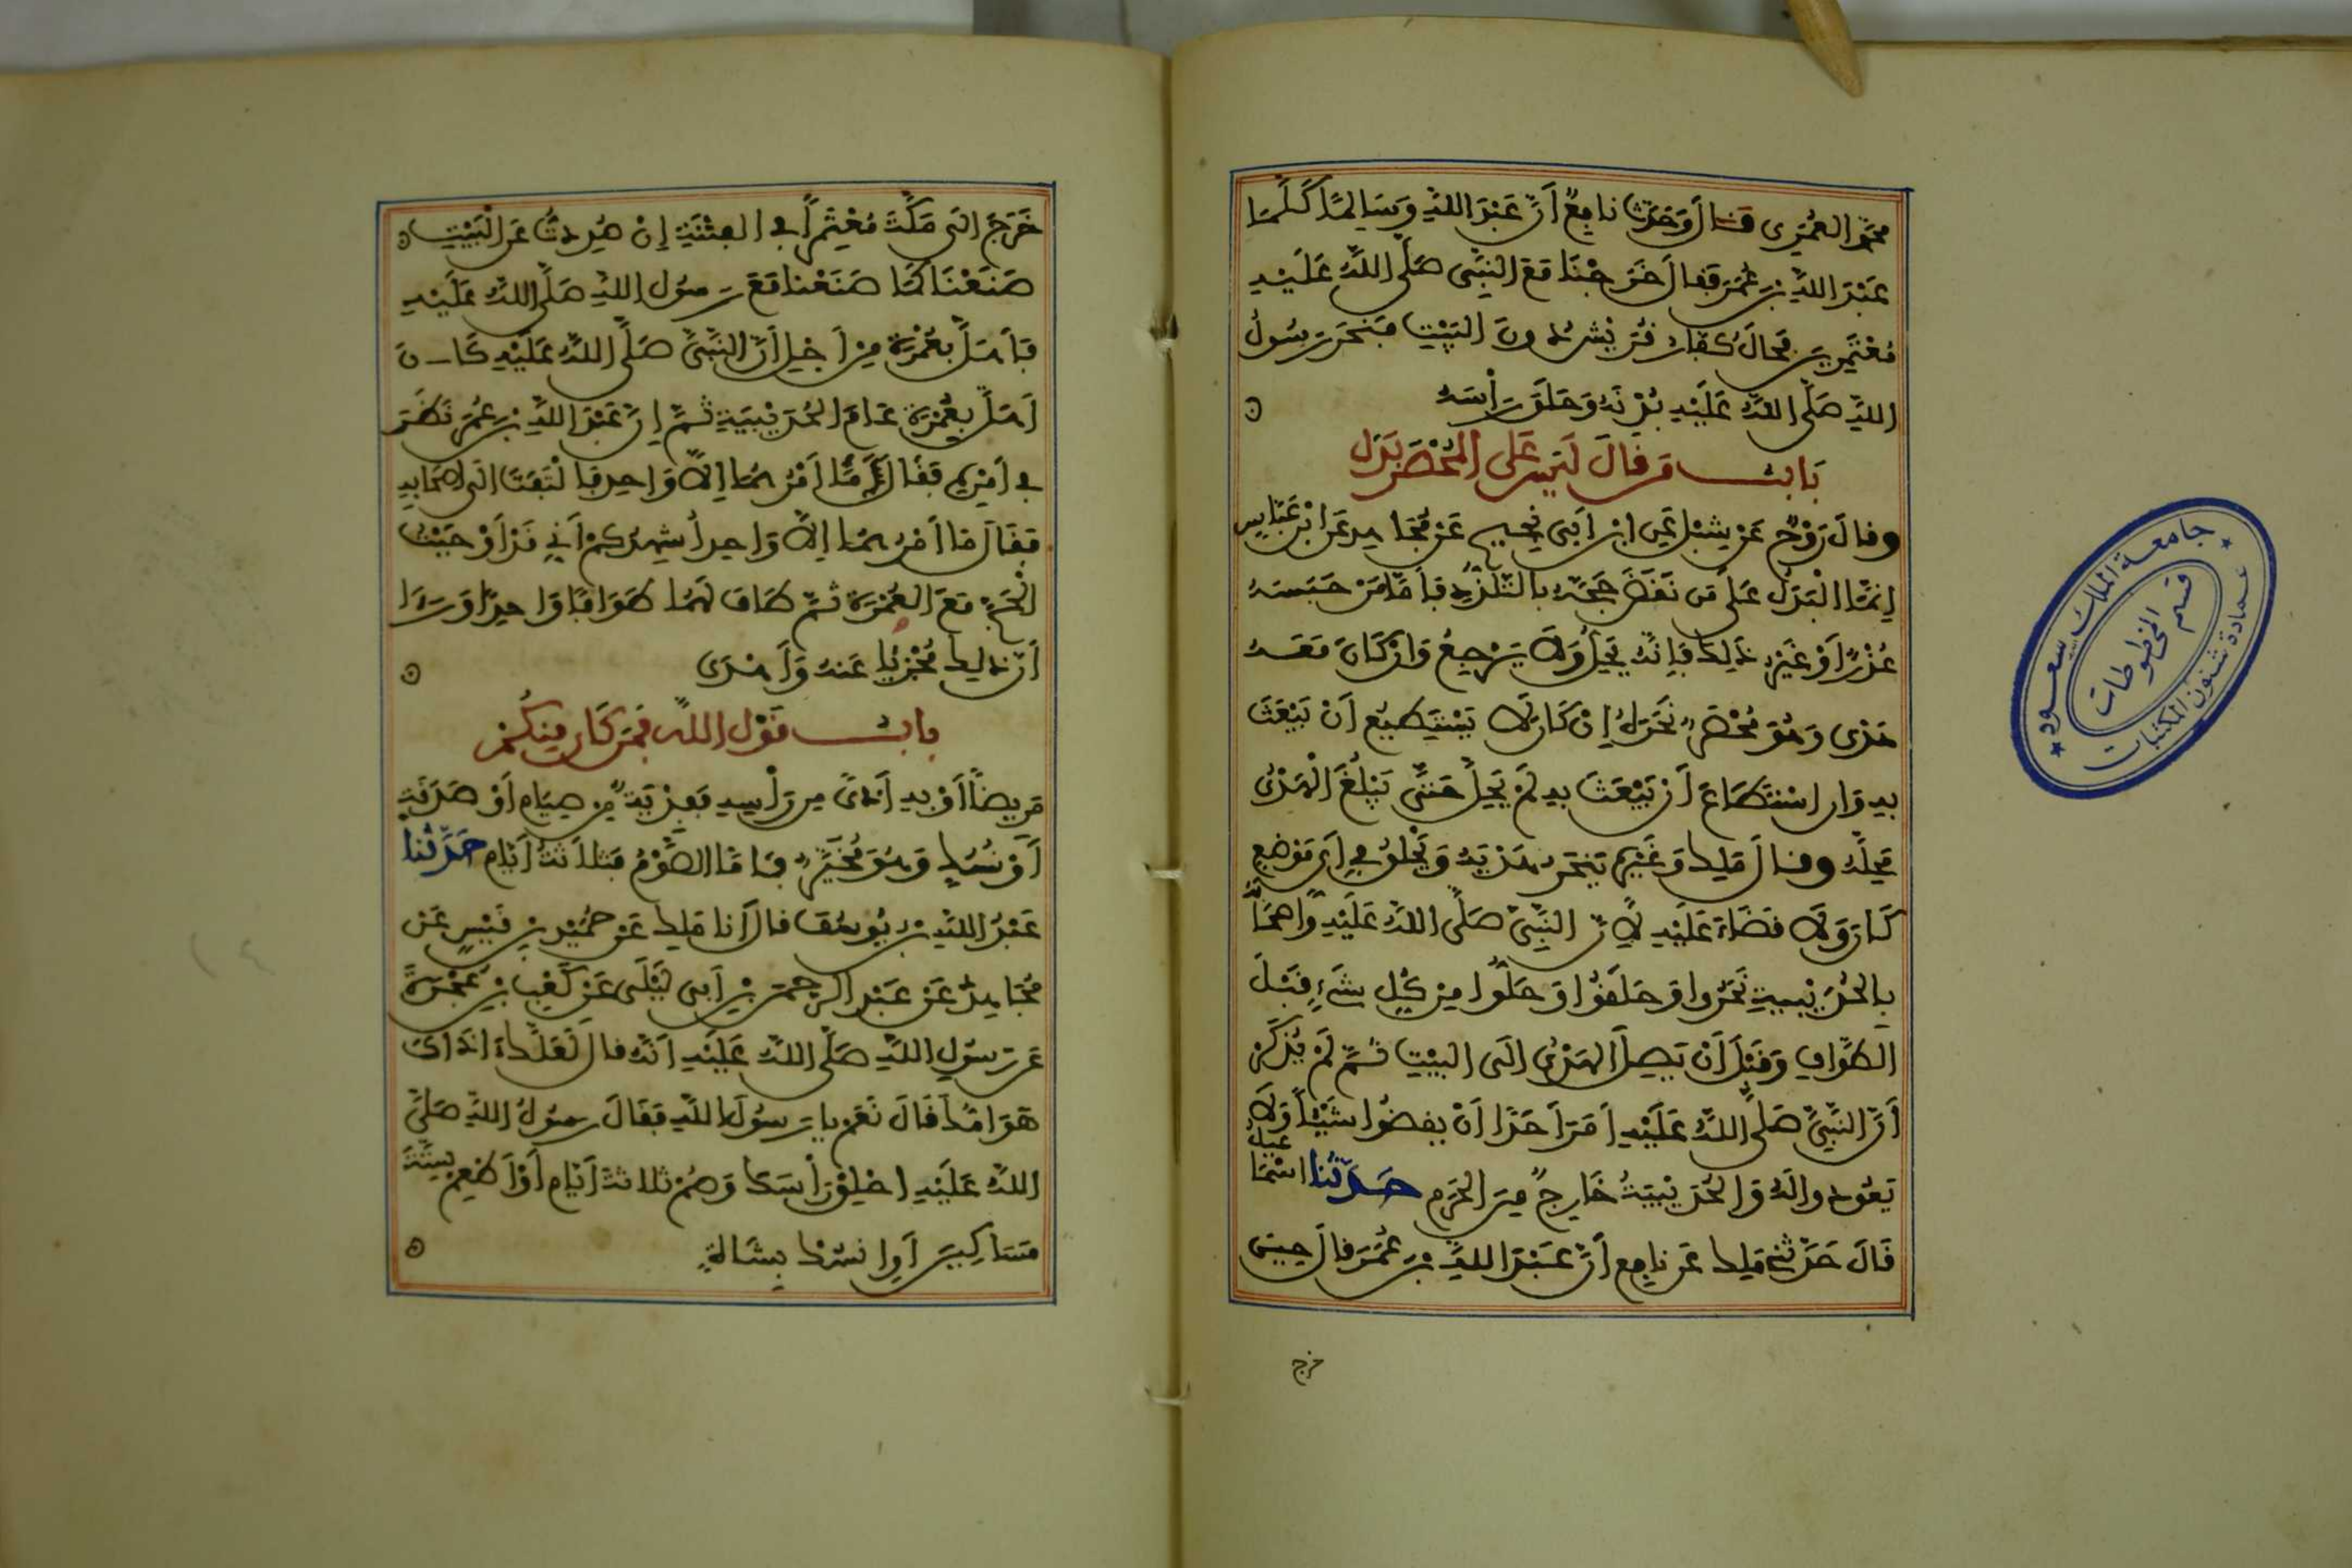 محمد العمري قال وحدث نافع أن عبد الله وسالما كلما
عبد الله بن عمر فقال خرجنا مع النبي صلى الله عليه
معتمرين فحال كفار قريش دون البيت فنحر رسول
الله صلى الله عليه بدنه وحلق رأسه
باب من قال ليس على المحصر بدل
وقال روح عن شبل عن ابن أبي نجيح عن مجاهد عن ابن عباس
إنما البدل على من نقض حجه بالتلذذ فأما من حبسه
عذر أو غير ذلك فإنه يحل ولا يرجع وإن كان معه
هدي وهو محصر نحره إن كان لا يستطيع أن يبعث
به وإن استطاع أن يبعث به لم يحل حتى يبلغ الهدي
محله وقال ملك وغيره ينحر هديه ويحلق في أي موضع
كان ولا قضاء عليه لأن النبي صلى الله عليه وأصحابه
بالحديبية نحروا وحلقوا وحلوا من كل شيء قبل
الطواف وقبل أن يصل الهدي إلى البيت ثم لم يذكر
أن النبي صلى الله عليه أمر أحدا أن يقضوا شيئا ولا
يعودوا له والحديبية خارج من الحرم حدثنا اسماعيل
قال حدثني ملك عن نافع أن عبد الله بن عمر قال حين
خرج
خرج إلى مكة معتمرا في الفتنة إن صددت عن البيت
صنعنا كما صنعنا مع رسول الله صلى الله عليه
فأهل بعمرة من أجل أن النبي صلى الله عليه كان
أهل بعمرة عام الحديبية ثم إن عبد الله بن عمر نظر
في أمره فقال ما أمرهما إلا واحد فالتفت إلى أصحابه
فقال ما أمرهما إلا واحد أشهدكم أني قد أوجبت
الحج مع العمرة ثم طاف لهما طوافا واحدا ورءا
أن ذلك مجزيا عنه وأهدى
باب قول الله فمن كان منكم
مريضا أو به أذى من رأسه ففدية من صيام أو صدقة
أو نسك وهو مخير فأما الصوم فثلاثة أيام حدثنا
عبد الله بن يوسف قال أنا ملك عن حميد بن قيس عن
مجاهد عن عبد الرحمن بن أبي ليلى عن كعب بن عجرة
عن رسول الله صلى الله عليه أنه قال لعلك اذاك
هوامك قال نعم يا رسول الله فقال رسول الله صلى
الله عليه احلق رأسك وصم ثلاثة أيام أو أطعم ستة
مساكين أو انسك بشاة
جامعة الملك سعود
قسم المخطوطات
عمادة شئون المكتبات